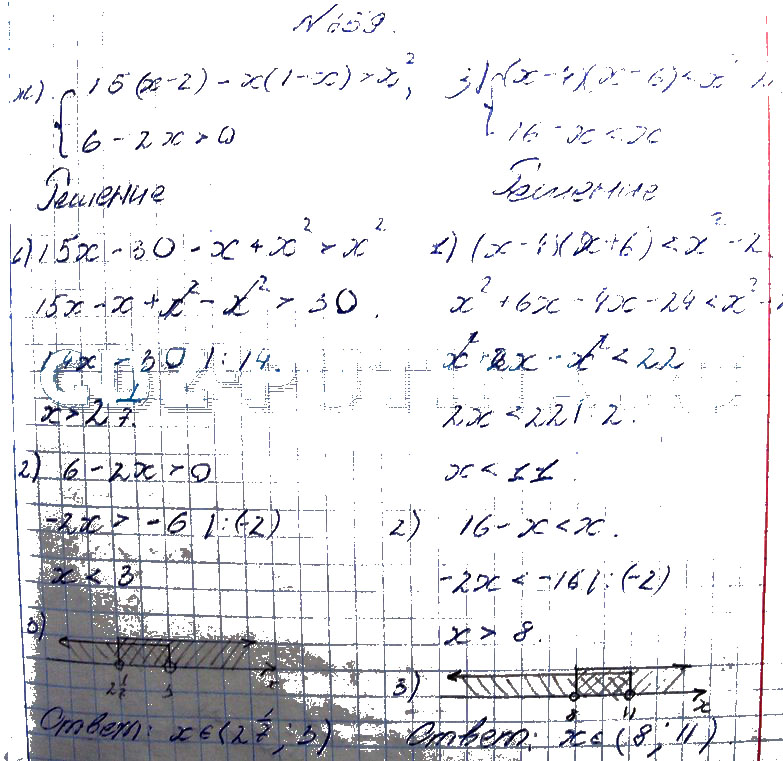 № 659.
ж) { 15(x-2) - x(1-x) > x²,
6 - 2x > 0
Решение
1) 15x - 30 - x + x² > x²
15x - x + x² - x² > 30.
14x > 30 | : 14.
x > 2 1/7.
2) 6 - 2x > 0
-2x > -6 | : (-2)
x < 3
3)
2 1/7 3 x
Ответ: x ∈ (2 1/7; 3)
з) { (x-4)(x-6) < x²
16 - x < x
Решение
1) (x-4)(x+6) < x² - 2
x² + 6x - 4x - 24 < x² - 2
x² + 2x - x² < 22
2x < 22 | : 2.
x < 11.
2) 16 - x < x.
-2x < -16 | : (-2)
x > 8.
3)
8 11 x
Ответ: x ∈ (8; 11)